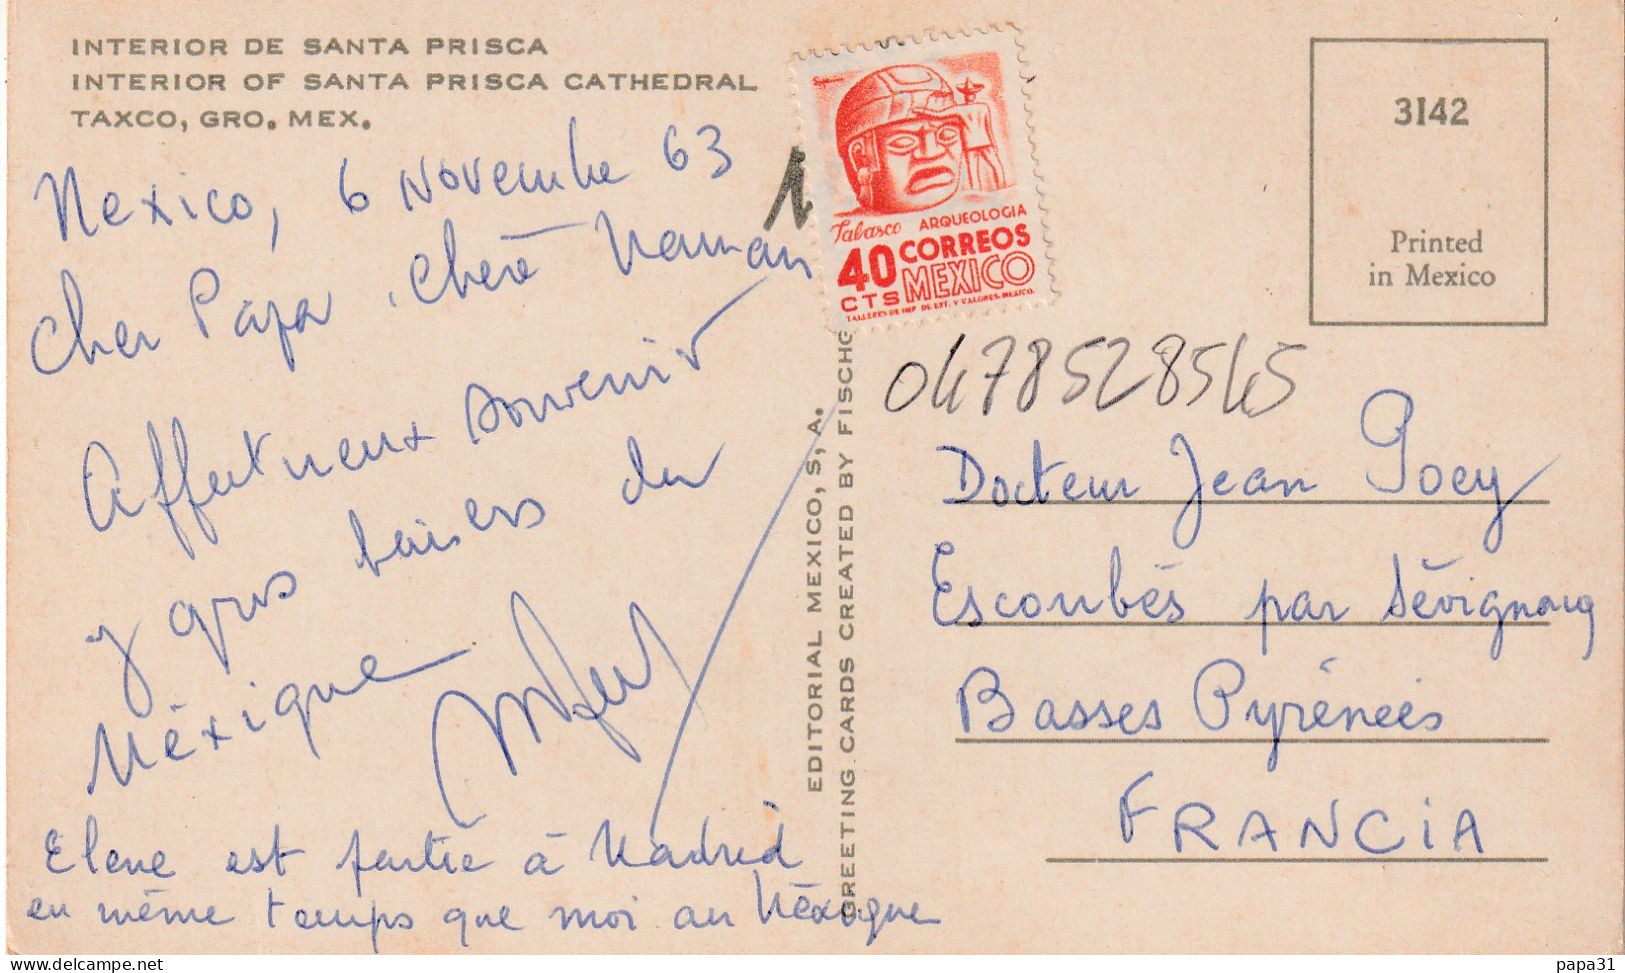 INTERIOR DE SANTA PRISCA
INTERIOR OF SANTA PRISCA CATHEDRAL
TAXCO, GRO. MEX.
Mexico, 6 Novembre 63
Cher Papa, Chère Maman
Affectueux souvenir
y gros baisers du
Méxique
Elene est partie à Madrid
en même temps que moi au Méxique
EDITORIAL MEXICO, S, A.
GREETING CARDS CREATED BY FISCHG
Tabasco ARQUEOLOGIA
40 CORREOS
CTS MEXICO
TALLERES DE IMP. DE EST. Y VALORES. MEXICO.
3142
Printed
in Mexico
0478528545
Docteur Jean Poey
Escoubès par Sévignacq
Basses Pyrénées
FRANCIA
papa31